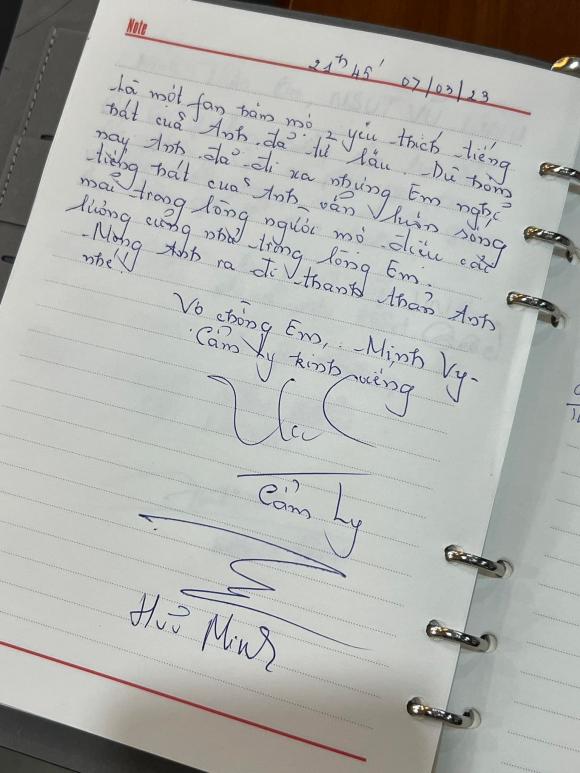 Note
21h 45' 07/03/23
Là một fan hâm mộ, yêu thích tiếng
hát của Anh đã từ lâu. Dù hôm
nay Anh đã đi xa nhưng Em nghĩ
tiếng hát của Anh vẫn luôn sống
mãi trong lòng người mộ điệu cải
lương cũng như trong lòng Em.
- Mong Anh ra đi thanh thản Anh
nhé!
Vợ chồng Em, Minh Vy -
Cẩm Ly kính viếng
Cẩm Ly
Hữu Minh